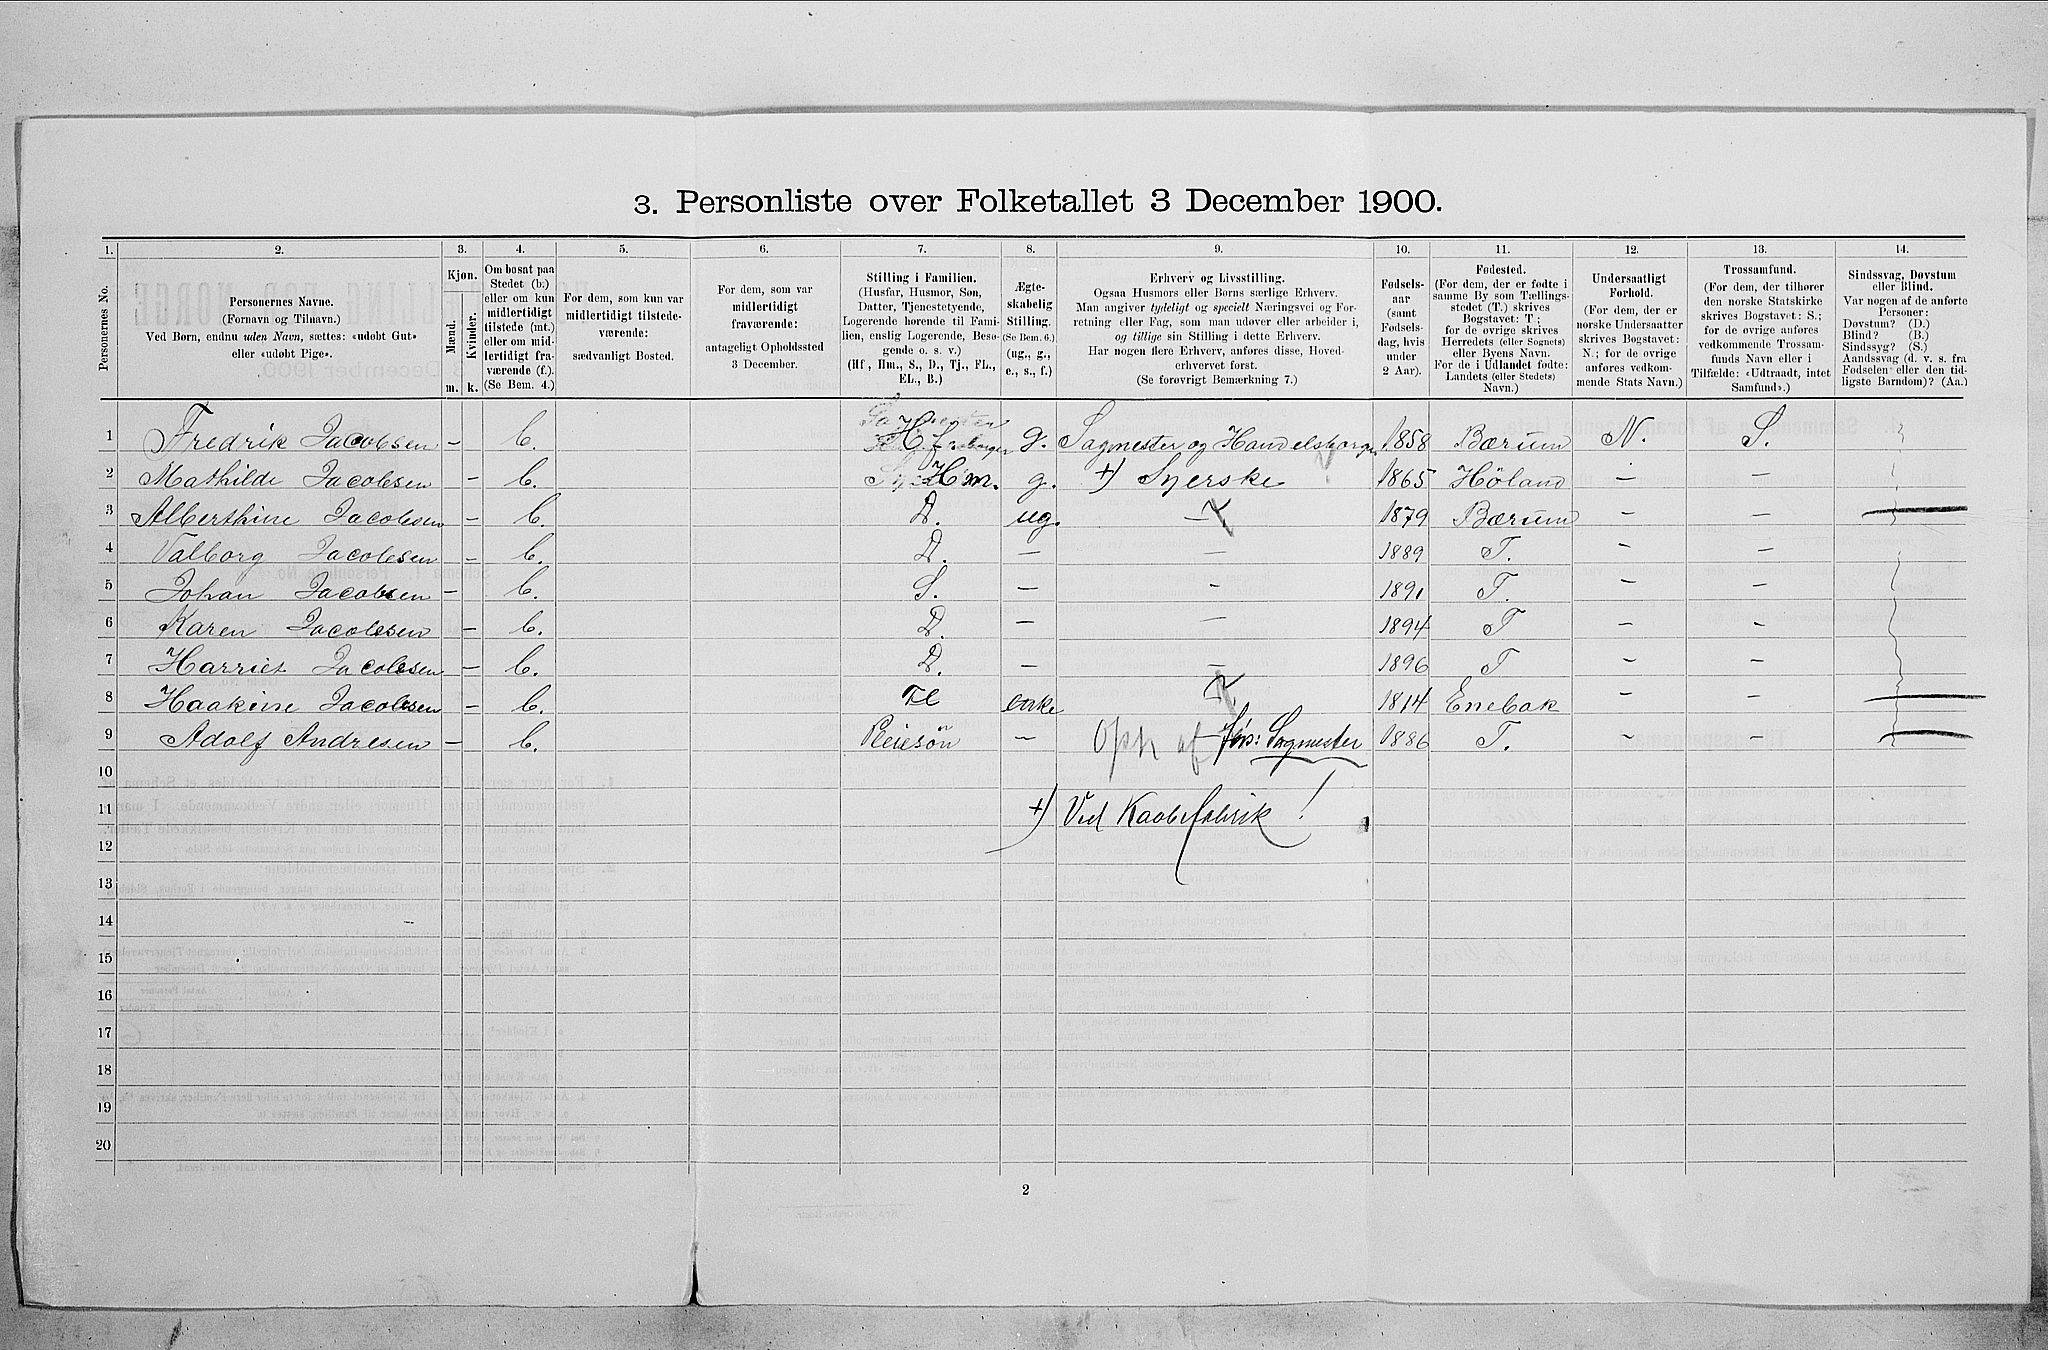 3. Personliste over Folketallet 3 December 1900.
1. 2. 3. 4. 5. 6. 7. 8. 9. 10. 11. 12. 13. 14.
Personernes No.
Personernes Navne.
(Fornavn og Tilnavn.)
Ved Børn, endnu uden Navn, sættes: «udøbt Gut»
eller «udøbt Pige».
Kjøn.
Mænd.
Kvinder.
m. k.
Om bosat paa
Stedet (b.)
eller om kun
midlertidigt
tilstede (mt.)
eller om mid-
lertidigt fra-
værende (f.).
(Se Bem. 4.)
For dem, som kun var
midlertidigt tilstede-
værende:
sædvanligt Bosted.
For dem, som var
midlertidigt
fraværende:
antageligt Opholdssted
3 December.
Stilling i Familien.
(Husfar, Husmor, Søn,
Datter, Tjenestetyende,
Logerende hørende til Fami-
lien, enslig Logerende, Besø-
gende o. s. v.)
(Hf., Hm., S., D., Tj., FL.,
EL., B.)
Ægte-
skabelig
Stilling.
(Se Bem. 6.)
(ug., g.,
e., s., f.)
Erhverv og Livsstilling.
Ogsaa Husmors eller Børns særlige Erhverv.
Man angiver tydeligt og specielt Næringsvei og For-
retning eller Fag, som man udøver eller arbeider i,
og tillige sin Stilling i dette Erhverv.
Har nogen flere Erhverv, anføres disse, Hoved-
erhvervet først.
(Se forøvrigt Bemærkning 7.)
Fødsels-
aar
(samt
Fødsels-
dag, hvis
under
2 Aar).
Fødested.
(For dem, der er fødte i
samme By som Tællings-
stedet (T.) skrives
Bogstavet: T;
for de øvrige skrives
Herredets (eller Sognets)
eller Byens Navn.
For de i Udlandet fødte:
Landets (eller Stedets)
Navn.)
Undersaatligt
Forhold.
(For dem, der er
norske Undersaatter
skrives Bogstavet:
N.; for de øvrige
anføres vedkom-
mende Stats Navn.)
Trossamfund.
(For dem, der tilhører
den norske Statskirke
skrives Bogstavet: S.;
for de øvrige anføres
vedkommende Trossam-
funds Navn eller i
Tilfælde: «Udtraadt, intet
Samfund».)
Sindssvag, Døvstum
eller Blind.
Var nogen af de anførte
Personer:
Døvstum? (D.)
Blind? (B.)
Sindssyg? (S.)
Aandssvag (d. v. s. fra
Fødselen eller den tid-
ligste Barndom)? (Aa.)
1 Fredrik Jacobsen – b. Hf g. Sagmester og Handelsborger 1858 Bærum N. S.
2 Mathilde Jacobsen – b. Hm. g. +) Syerske 1865 Höland – –
3 Alberthine Jacobsen – b. D. ug. – 1879 Bærum – –
4 Valborg Jacobsen – b. D. – – 1889 T. – –
5 Johan Jacobsen – b. S. – – 1891 T. – –
6 Karen Jacobsen – b. D. – – 1894 T – –
7 Harriet Jacobsen – b. D. – – 1896 T – –
8 Haakine Jacobsen – b. FL enke 1814 Enebak – –
9 Adolf Andresen – b. Pleiesön – af Sagmester 1886 T. – –
10
11 +) Ved Kaabefabrik!
12
13
14
15
16
17
18
19
20
2